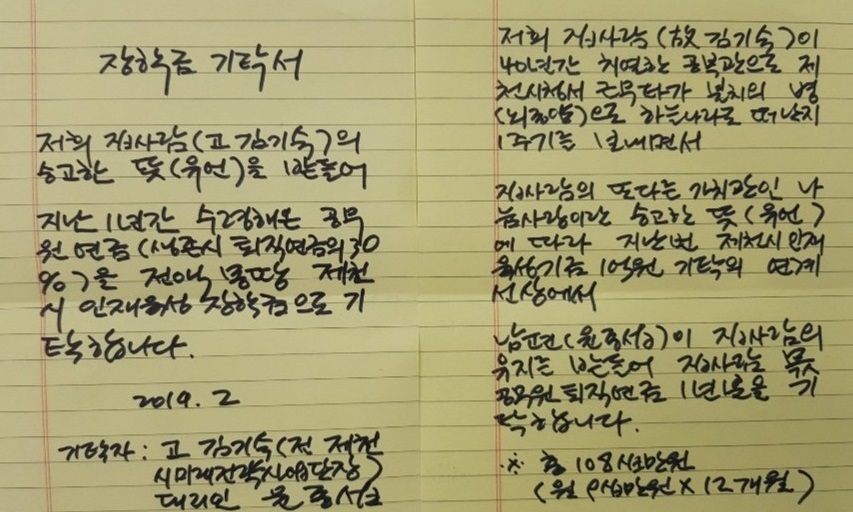 장학금 기탁서
저희 집사람(고 김기숙)의
숭고한 뜻(유언)을 받들어
지난 1년간 수령해온 공무
원 연금(생존시 퇴직연금의 30
%)을 전액 몽땅 제천
시 인재육성 장학금으로 기
탁합니다.
2019. 2
기탁자 : 고 김기숙(전 제천
시미래전략사업단장)
대리인 윤종섭
저희 집사람(故 김기숙)이
40년간 취연한 공복관으로 제
천시청서 근무타가 불치의 병
(뇌종양)으로 하늘나라로 떠난지
1주기를 보내면서
집사람의 또다른 가치관인 나
눔사랑이란 숭고한 뜻(유언)
에 따라 지난번 제천시 인재
육성기금 1억원 기탁의 연계
선상에서
남편(윤종섭)이 집사람의
유지를 받들어 집사람 몫
공무원 퇴직연금 1년분을 기
탁합니다.
※ 총 1080만원
(월 90만원 × 12개월)